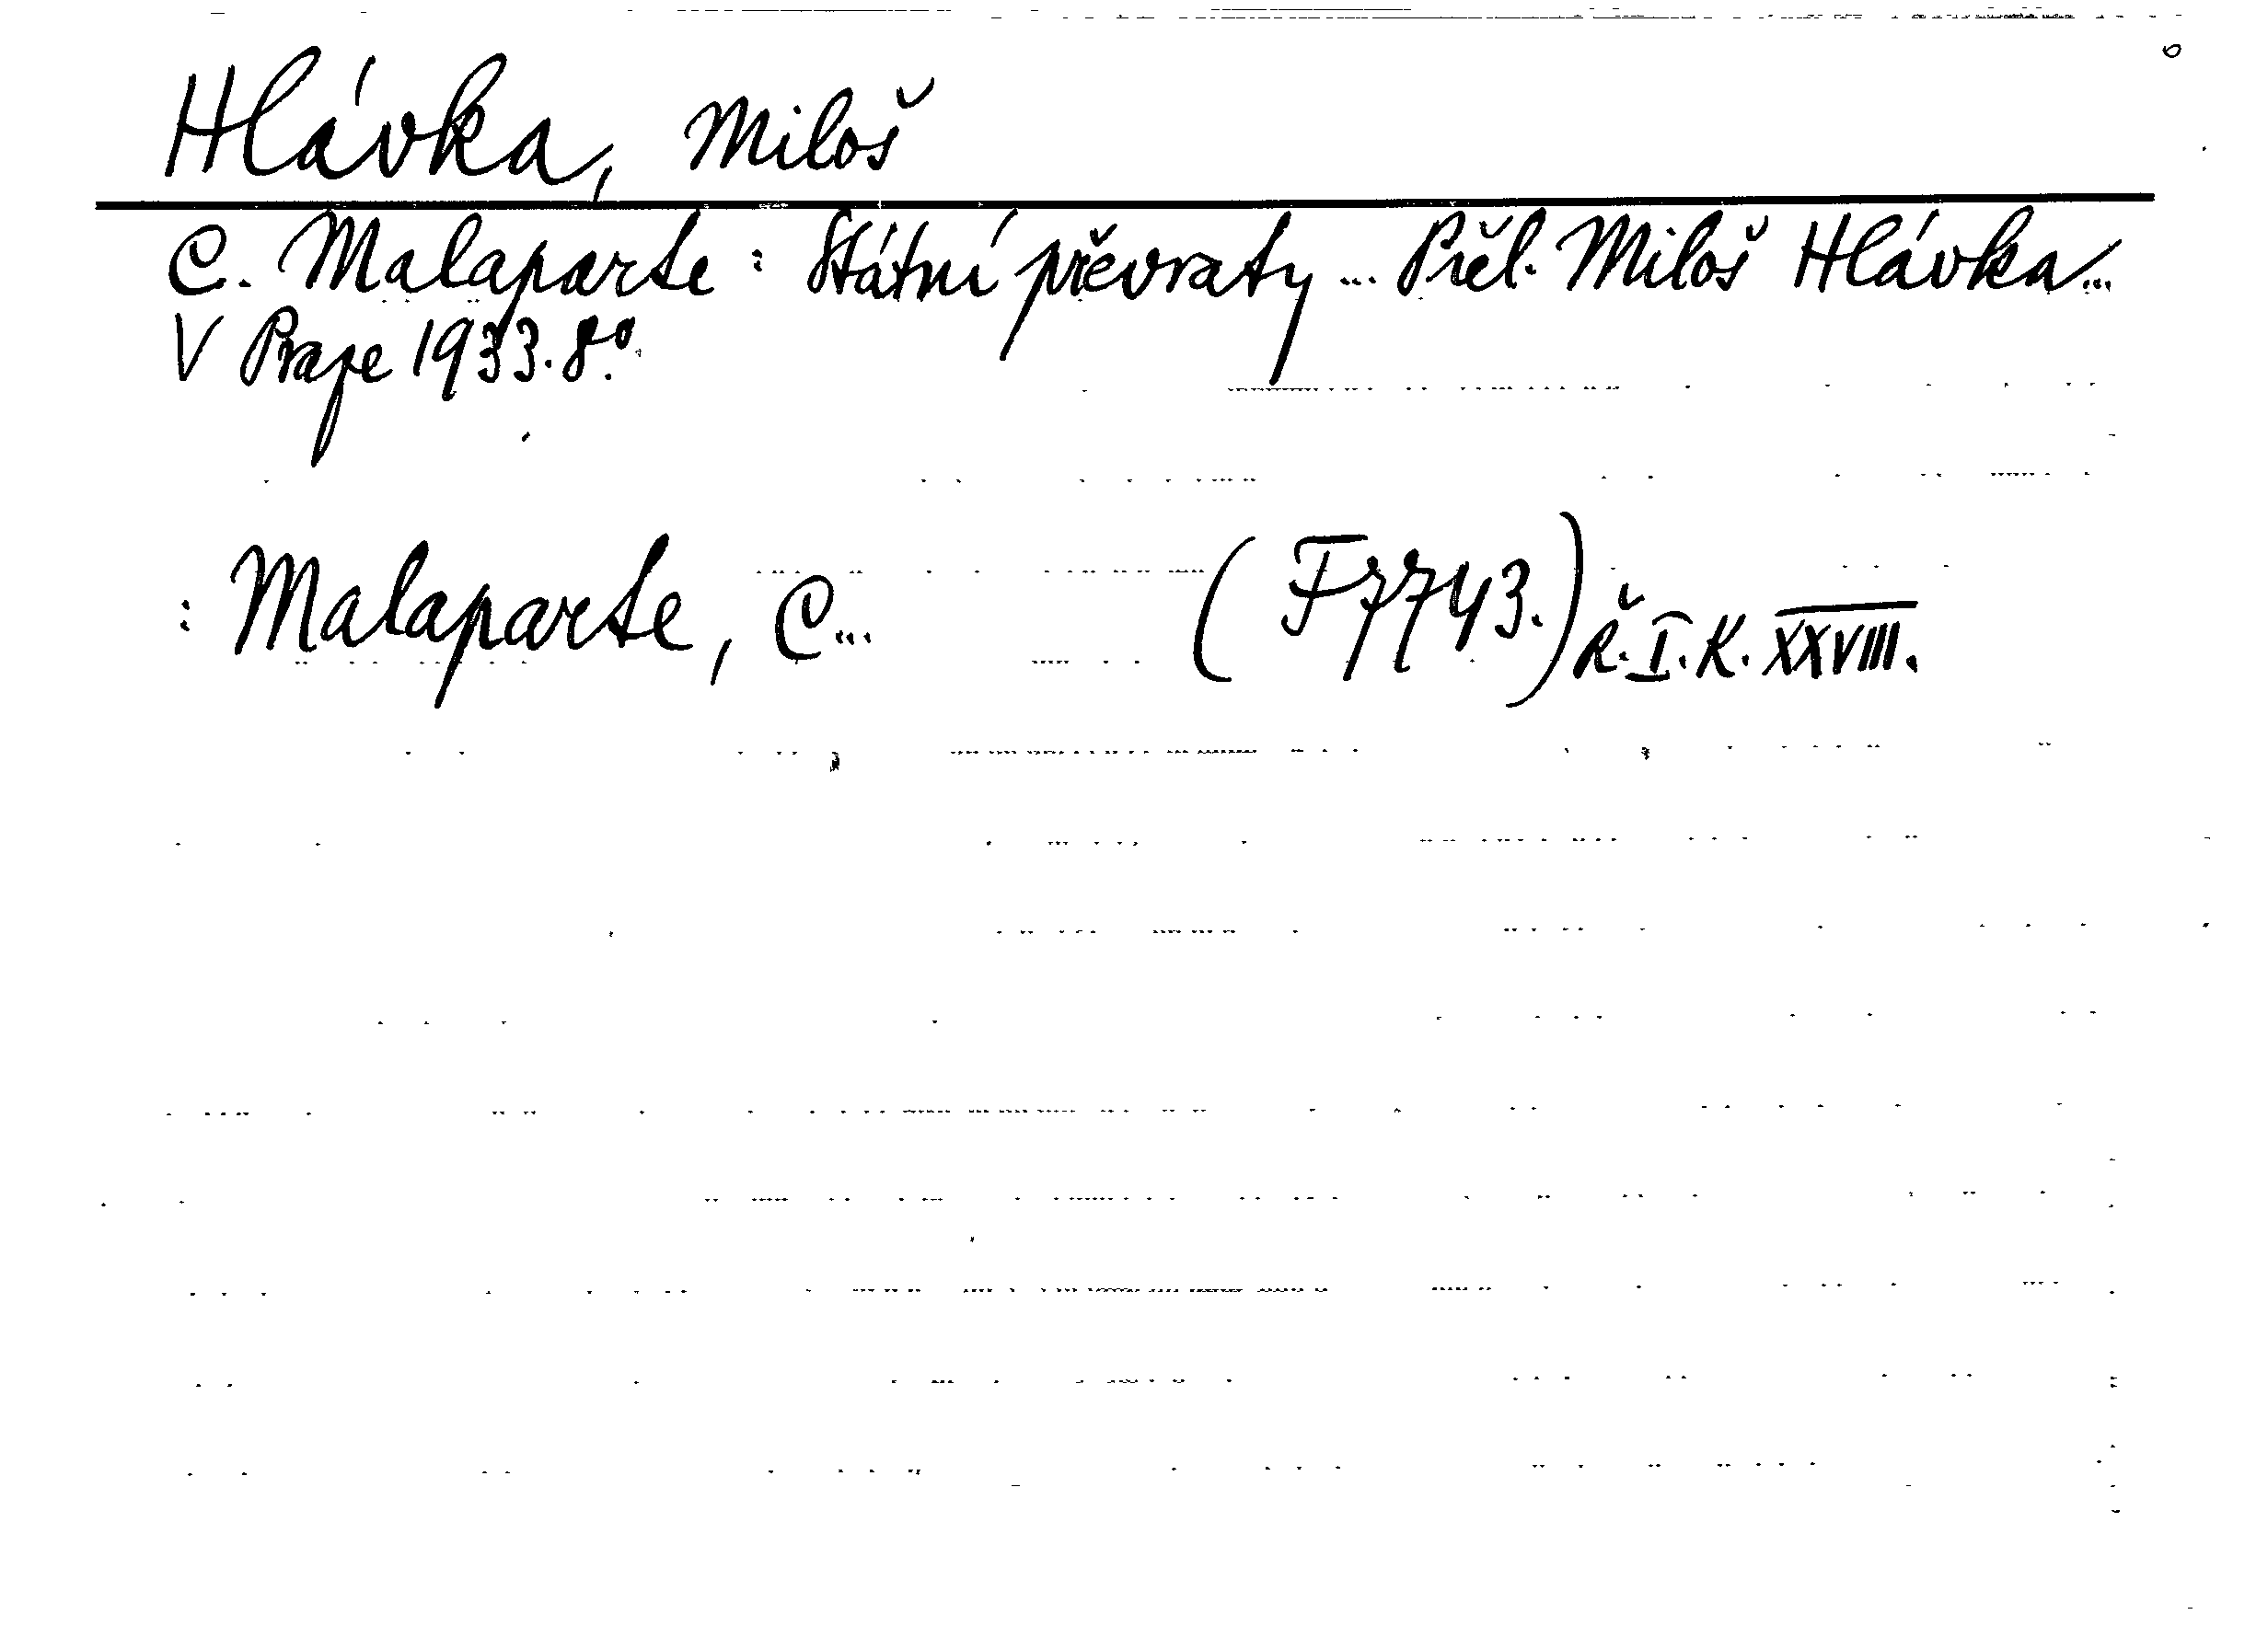 Hlávka, Miloš
C. Malaparte: Státní převraty... Přel. Miloš Hlávka...
V Praze 1933. 8°.
: Malaparte, C... (F 7743.) Ř. I. K. XXVIII.